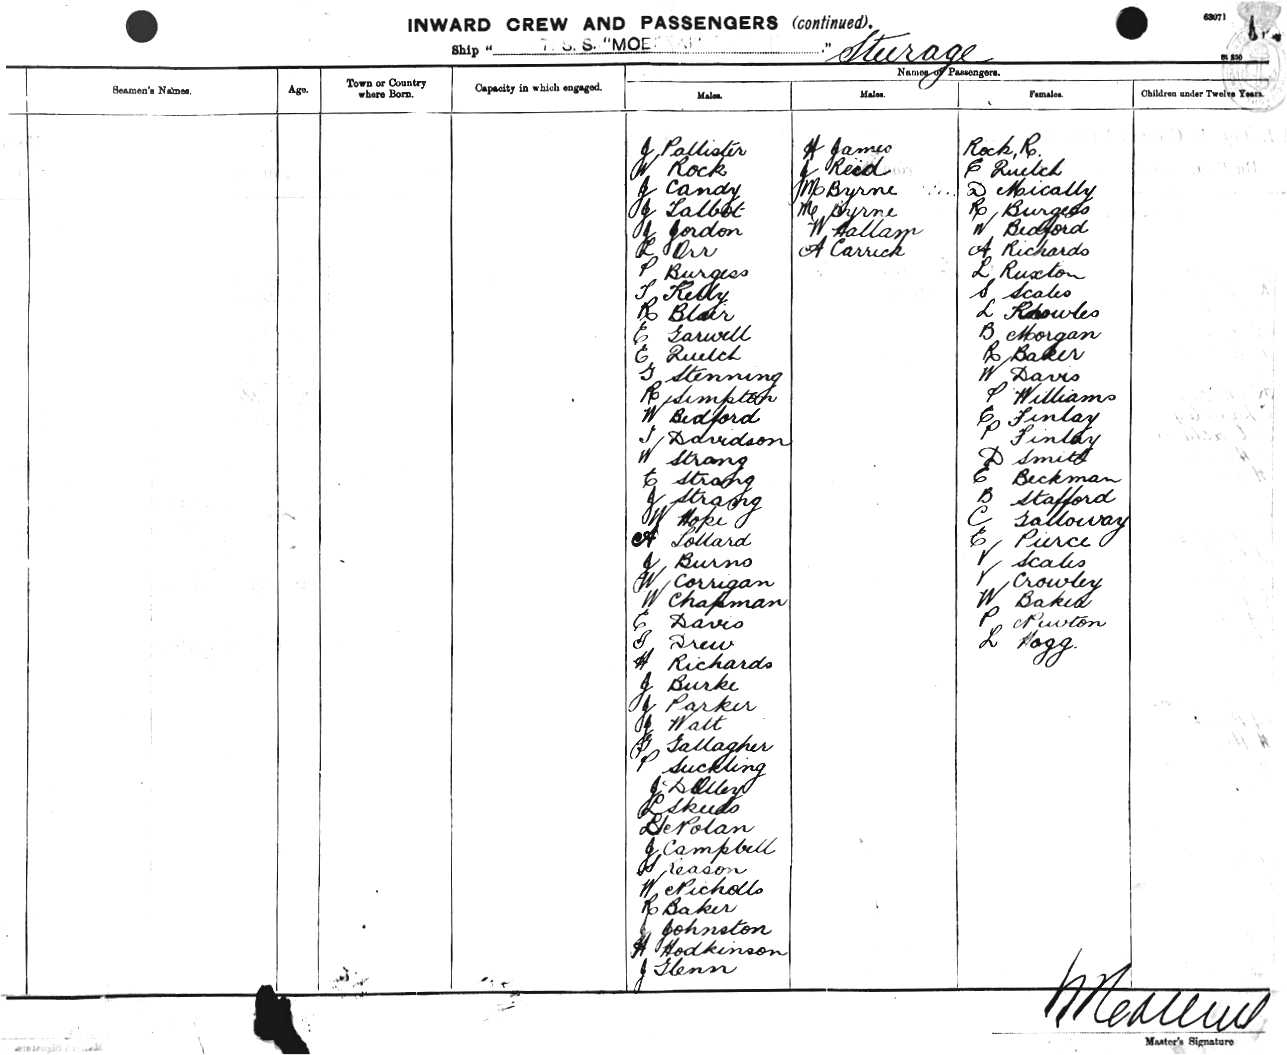 INWARD CREW AND PASSENGERS (continued).
63071
Ship " T. S. S. "MOE " Steerage
Names of Passengers.
Seamen's Names.
Age.
Town or Country
where Born.
Capacity in which engaged.
Males.
Males.
Females.
Children under Twelve Years.
J Pallister
W Rock
J Candy
J Talbot
J Gordon
L Orr
P Burgess
T Kelly
R Blair
E Garwell
E Quelch
G Stenning
R Simpton
W Bedford
T Davidson
W Strang
E Strang
J Strang
W Hope
A Lollard
J Burns
W Corrigan
W Chapman
E Davis
G Drew
H Richards
J Burke
J Parker
J Watt
G Gallagher
P Suckling
J Dolley
L Skeds
L DeNolan
J Campbell
Reason
W Nicholls
R Baker
J Johnston
H Hodkinson
J Glenn
H James
J Reid
M Byrne
M Byrne
W Hallam
A Carrick
Rock, R.
E Quelch
D Mically
R Burgess
W Bedford
A Richards
L Ruxton
S Scales
L Knowles
B Morgan
R Baker
W Davis
P Williams
E Finlay
P Finlay
D Smith
E Beckman
B Stafford
C Galloway
E Pierce
V Scales
V Crowley
W Baker
P Newton
L Hogg.
Master's Signature